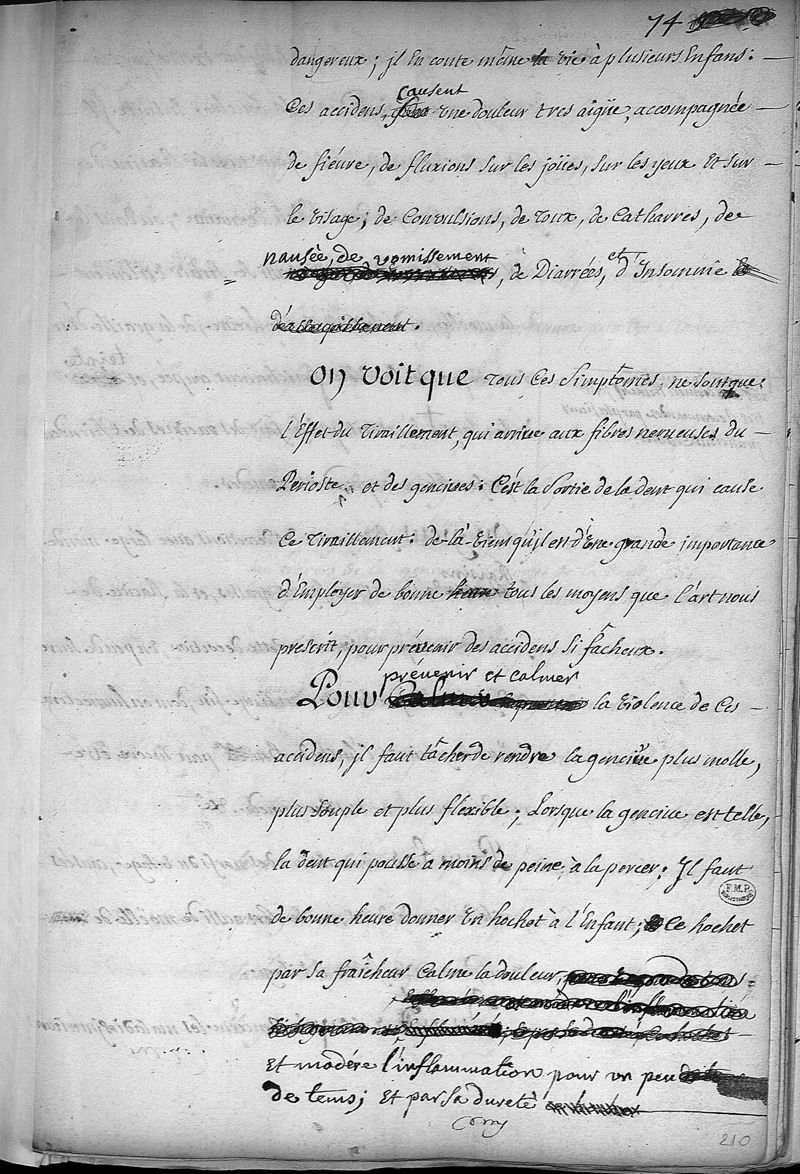 74
dangereux; jl En coute même la vie à plusieurs Enfans:
Ces accidens, causent une douleur tres aigüe, accompagnée
de fiévre, de fluxions sur les joües, sur les yeux et sur
le visage; de Convulsions, de toux, de Catharres, de
nausée, de vomissement, de Diarrées, et d'Insomnie
On voit que tous ces simptômes, ne sont que
l'Effet du Tiraillement, qui arrive aux fibres nerveuses du
Perioste, et des gencives: C'est la sortie de la dent qui cause
Ce Tiraillement: de-là-vien qu'jl est d'Une grande importance
d'Employer de bonne heure tous les moyens que l'art nous
prescrit, pour prévenir des accidens si fâcheux.
Pour prévenir et calmer la violence de Ces
accidens, jl faut tâcher de rendre la gencive plus molle,
plus souple et plus flexible; Lorsque la gencive est telle,
la dent qui pousse à moins de peine, à la percer: Jl faut
de bonne heure donner un hochet à l'Enfant; Ce hochet
par sa fraîcheur Calme la douleur,
Et modére l'inflammation pour un peu
de tems; Et par sa dureté
F.M.P.
210